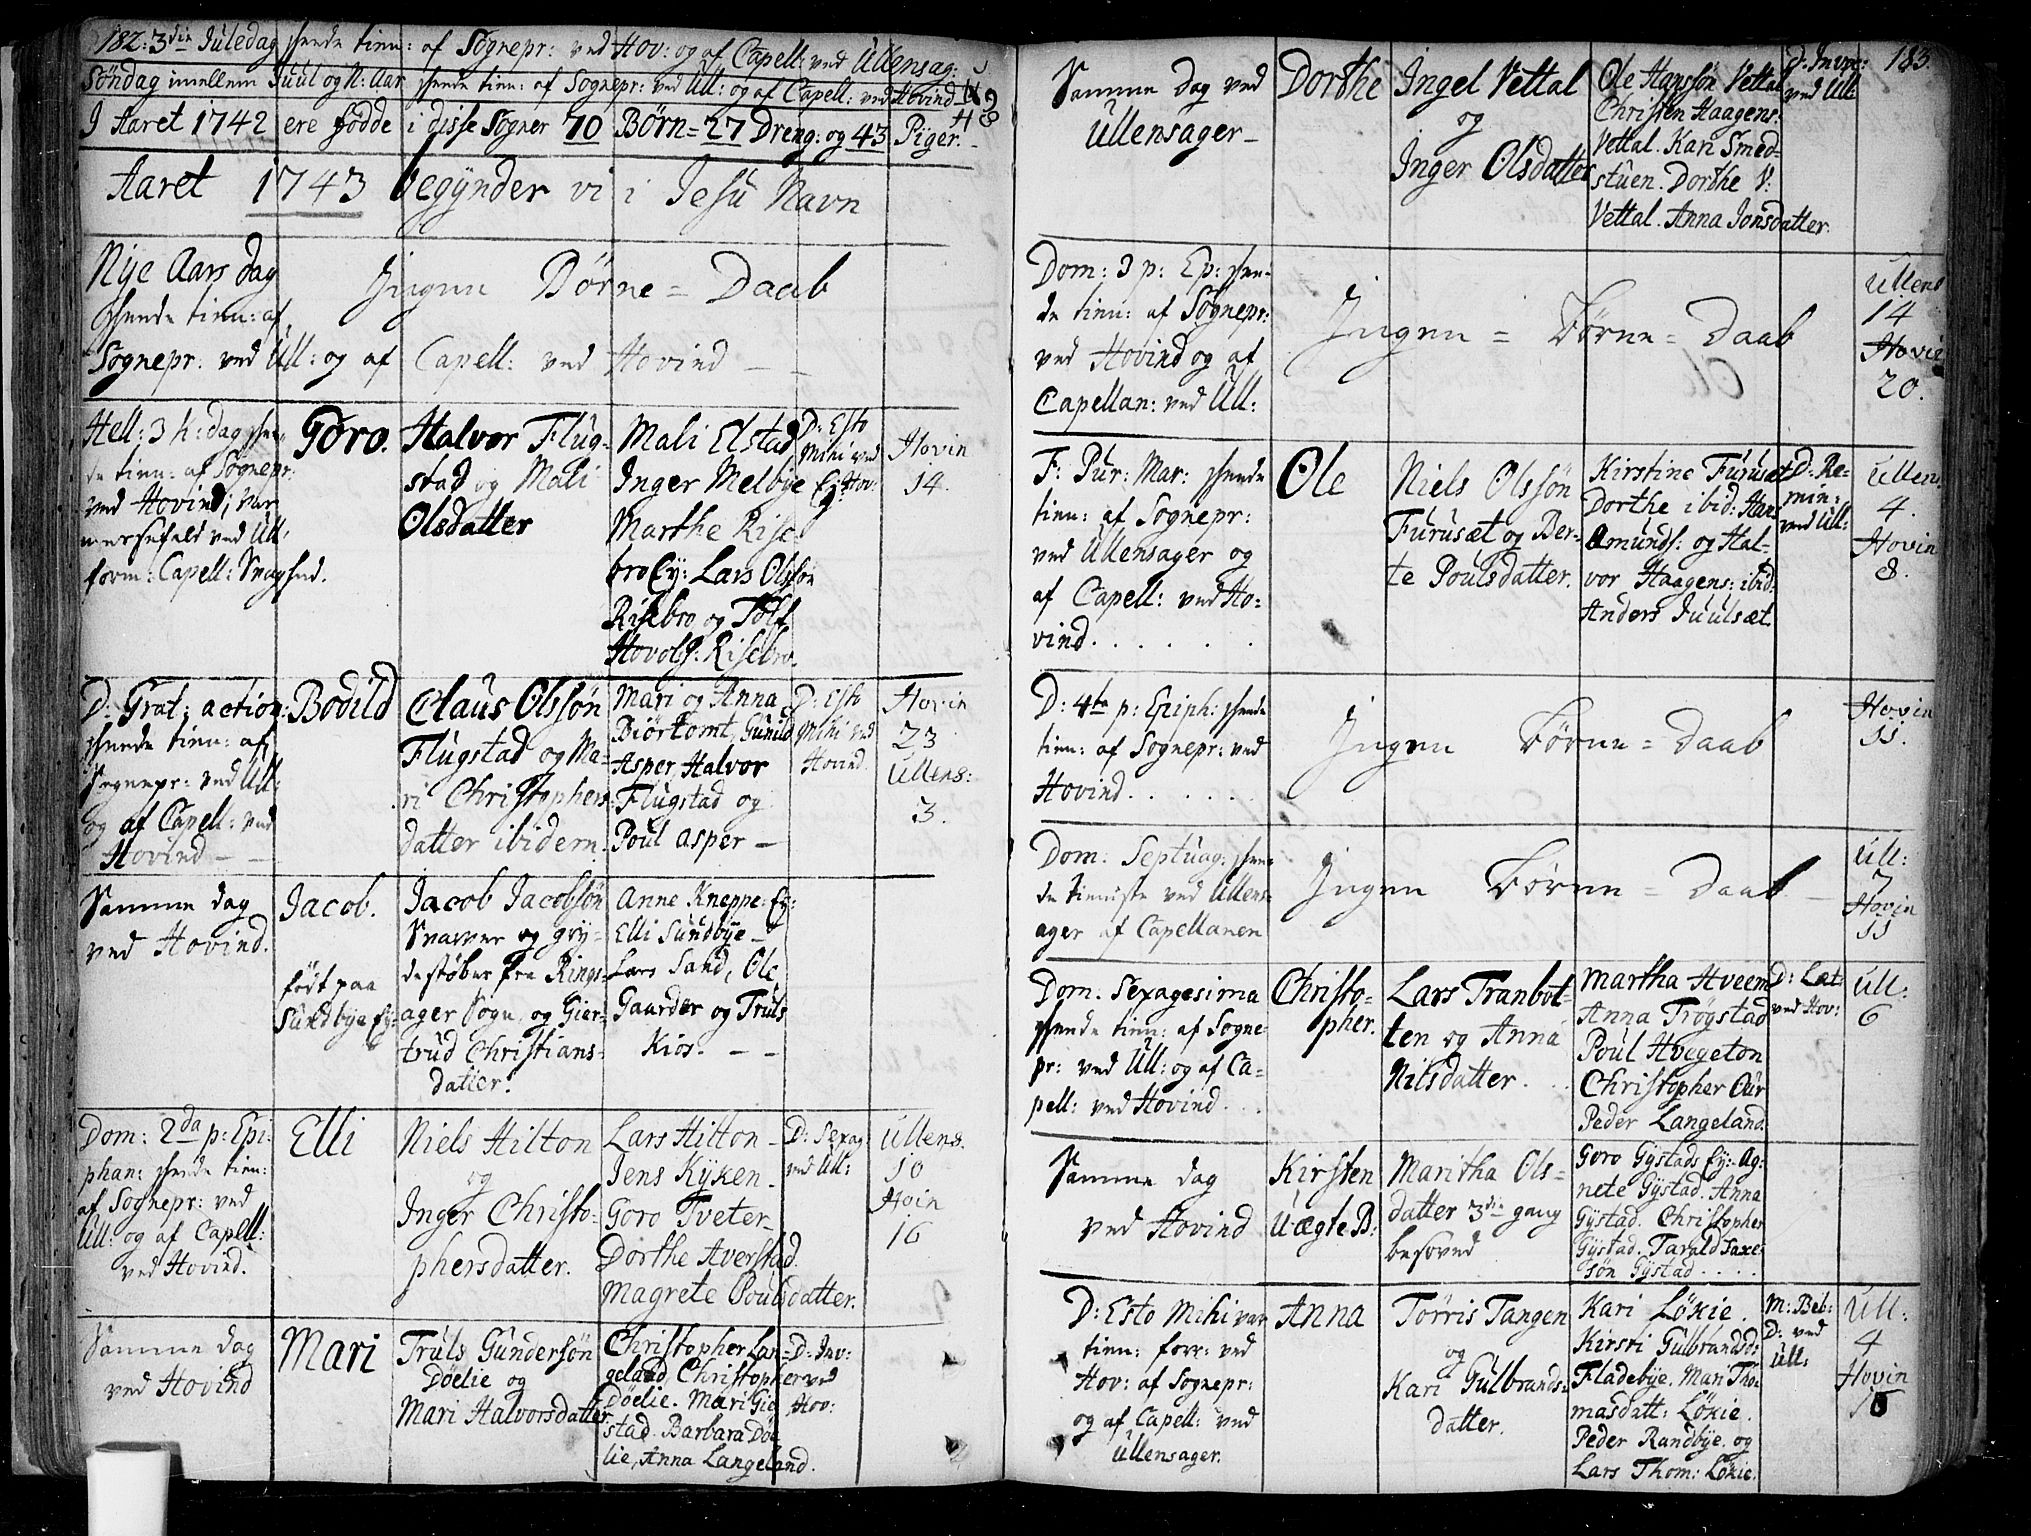 182. 3die Juledag skeede tien: af Sognepr: ved Hov: og af Capell: ved Ullensag:
Söndag imellem Juul og N: Aar skeede tien: af Sognepr: ved Ull: og af Capell: ved Hovind
I Aaret 1742 ere födde i disse Sogner 70 Börn = 27 Dreng: og 43 Piger.
Aaret 1743 begÿnder vi i Jesu Navn
Nÿe Aars dag
skeede tien: af
Sognepr: ved Ull: og af Capell: ved Hovind
Ingen Börne = Daab
Hell: 3 k: dag skee-
de tien: af Sognepr:
ved Hovind; var
messefald ved Ull:
form: Capell: Svaghed.
Goro.
Halvor Flug-
stad og Mali
Olsdatter
Mali Elstad
Inger Melbÿe
Marthe Rise-
bro Eÿ: Lars Olssön
Risebro og Tolf
Hovols: Risebro
D: Esto
Mihi ved
Hov:
Hovin
14.
D: Grat: action:
skeede tien: af
Sognepr: ved Ull:
og af Capell: ved
Hovind
Bodild
Claus Olssön
Flugstad og Ma-
ri Christophers
datter ibidem.
Mari og Anna
Biörtomt, Gunild
Asper, Halvor
Flugstad og
Poul Asper
D: Esto
Mihi ved
Hovind
Hovin
23
Ullens:
3.
Samme dag
ved Hovind.
Jacob.
född paa
Sundbÿe Eÿ:
Jacob Jacobsön
Svarver og grÿ-
destöber fra Rings-
ager Sogn, og Gier-
trud Christians-
datter.
Anne Kneppe: Eÿ:
Elli Sundbÿe
Lars Sand, Ole
Gaarder og Truls
Kios.
Dom: 2da p: Epi-
phan: skeede tien:
af Sognepr: ved
Ull: og af Capell:
ved Hovind.
Elli
Niels Hilton
og
Inger Christo-
phersdatter.
Lars Hilton
Jens Kÿken
Goro Tveter
Dorthe Averstad
Magrete Poulsdatter.
D: Sexag:
ved Ull:
Ullens.
10
Hoin
16
Samme dag
ved Hovind
Mari
Truls Gundersön
Döelie og
Mari Halvorsdatter
Christopher Lan-
geland, Christopher
Döelie. Mari Gie
stad. Barbara Döe
lie, Anna Langeland.
D: Inv:
ved
Hov:
183.
Samme dag ved
Ullensager
Dorthe
Ingel Vettal
og
Inger Olsdatter
Ole Hanssön Vettal
Christen Haagens:
Vettal. Kari Smed-
stuen. Dorthe V:
Vettal. Anna Jonsdatter.
D: Invoc:
ved Ull:
Dom: 3 p: Ep: skee-
de tien: af Sognepr:
ved Hovind og af
Capellan: ved Ull:
Ingen = Börne = Daab
Ullens
14
Hovin
20.
F: Pur: Mar: skeede
tien: af Sognepr:
ved Ullensager og
af Capell: ved Ho-
vind.
Ole
Niels Olssön
Furusæt og Ber-
te Poulsdatter.
Kirstine Furusæt
Dorthe ibid: Hans
Amunds: og Hal-
vor Haagens: ibid:
Anders Juulsæt
D: Re-
min:
ved Ull:
Ullens.
4.
Hovin
8.
D: 4te p: Epiph: skeede
tien: af Sognepr: ved
Hovind.
Ingen Börne = Daab
Hovin
11.
Dom: Septuag: skee-
de tieniste ved Ullens-
ager af Capellanen
Ingen Börne = Daab
Ull:
7
Hovin
11
Dom. Sexagesima
skeede tien: af Sogne-
pr: ved Ull: og af Ca-
pell: ved Hovind.
Christo-
pher.
Lars Tranbot-
ten og Anna
Nilsdatter.
Martha Hveem
Anna Trögstad
Poul Hvegeton
Christopher Our
Peder Langeland.
D: Læt:
ved Hov:
Ull:
6
Samme dag
ved Hovind
Kirsten
Uægte B:
Maritha Ols-
datter 3die gang
besoved
Goro Gÿstads Eÿ: Ag-
nete Gÿstad. Anna
Gÿstad. Christopher
Gÿstad. Tarald Saxe-
sön Gÿstad
D: Esto Mihi var
tien: forr: ved
Hov: af Sognepr:
og af Capell: ved
Ullensager.
Anna
Torris Tangen
og
Kari Gulbrands-
datter.
Kari Lökie.
Kirsti Gulbrandsd:
Fladebÿe. Mari Tho-
masdatt: Lökie.
Peder Randbÿe. og
Lars Thom: Lökie.
M: Beb:
D: ved
Ull:
Ull:
4
Hovin